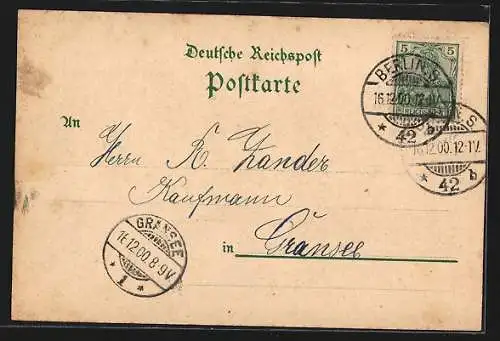 Deutsche Reichspost
Postkarte
5 5
BERLIN S
16.12.00.12-1V.
* 42 b
S
16.12.00.12-1V.
* 42 b
An
Herrn R. Zander
Kaufmann
in Gransee
GRANSEE
12.00.8-9V.
* 1 *